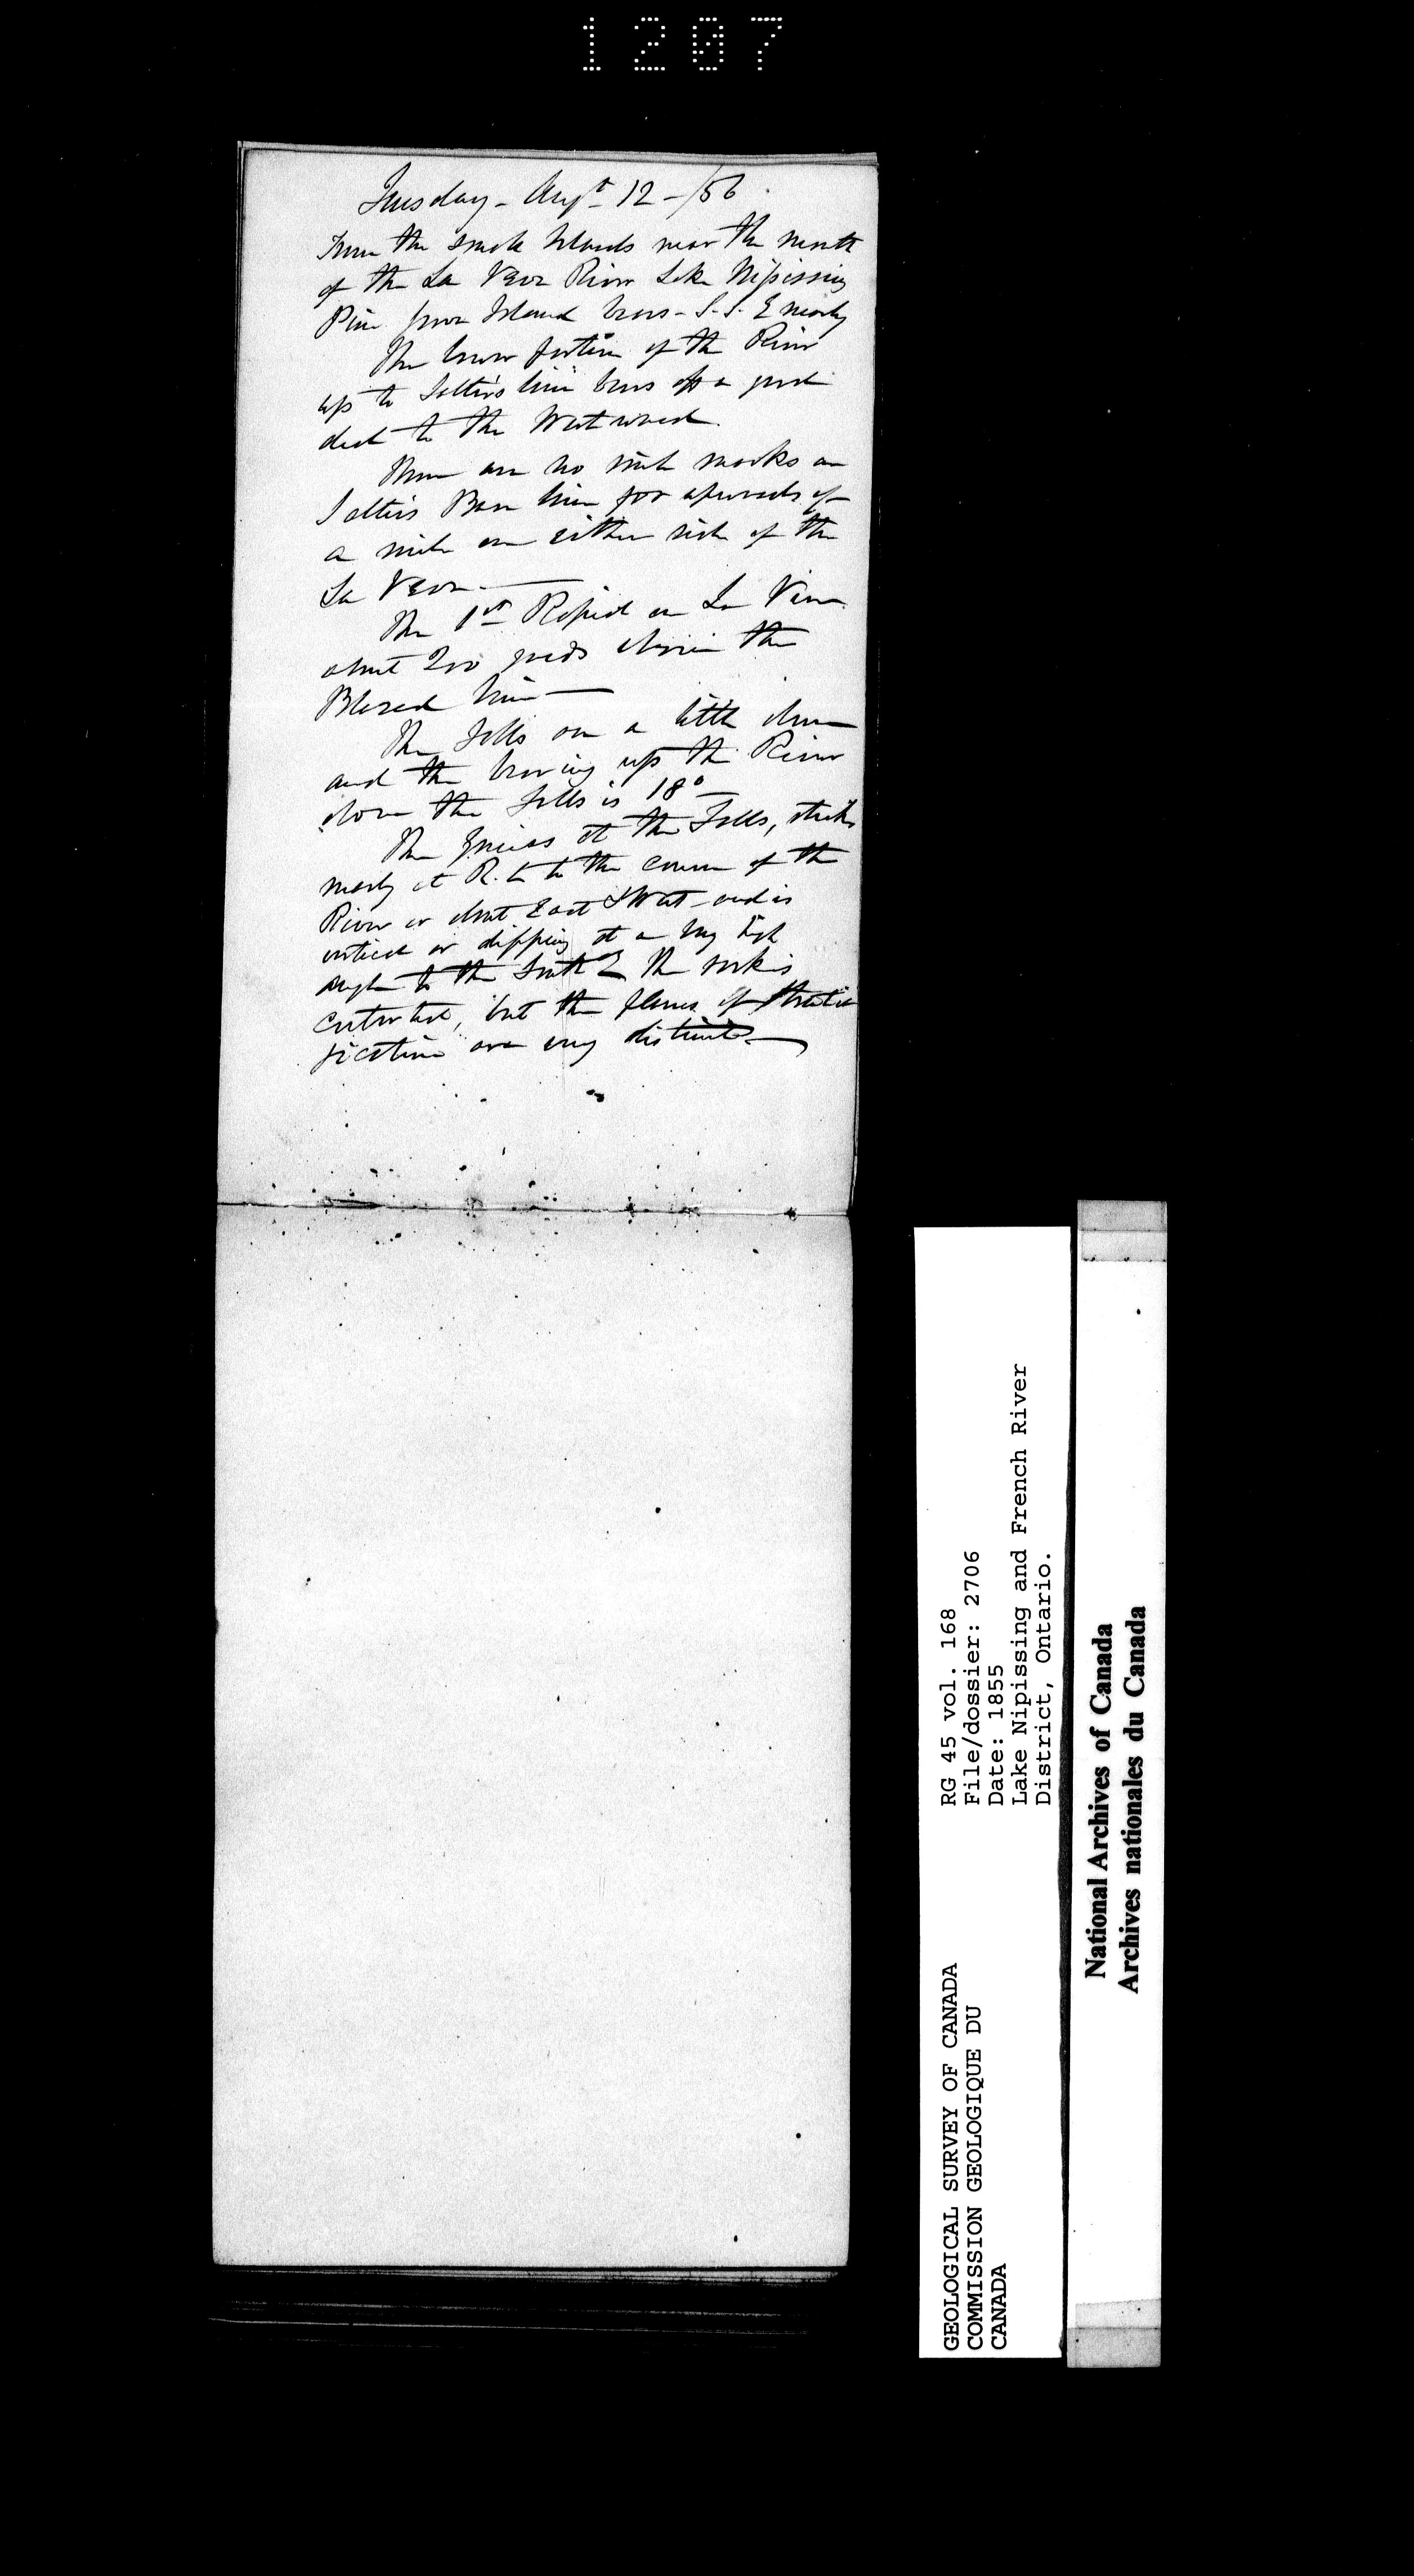 1207
Tuesday - Augt 12 - /56
From the small Islands near the mouth
of the La Vase River Lake Nipissing
Pine Island bears - S.S.E nearly
The lower portion of the River
up to Salter's line bears off a good
deal to the Westward.
There are no mile marks on
Salter's Base line for upwards of
a mile on either side of the
La Vase.
The 1st Rapid on La Vase
about 200 yards above the
Blazed line
The falls are a little above
and the bearing up the River
above the falls is 18°
The Gneiss at the Falls, strikes
nearly at R. L to the course of the
River or about East & West and is
vertical or dipping at a very high
angle to the South The rock is
contorted, but the planes of strati
fication are very distinct
RG 45 vol. 168
File/dossier: 2706
Date: 1855
Lake Nipissing and French River
District, Ontario.
GEOLOGICAL SURVEY OF CANADA
COMMISSION GEOLOGIQUE DU
CANADA
National Archives of Canada
Archives nationales du Canada